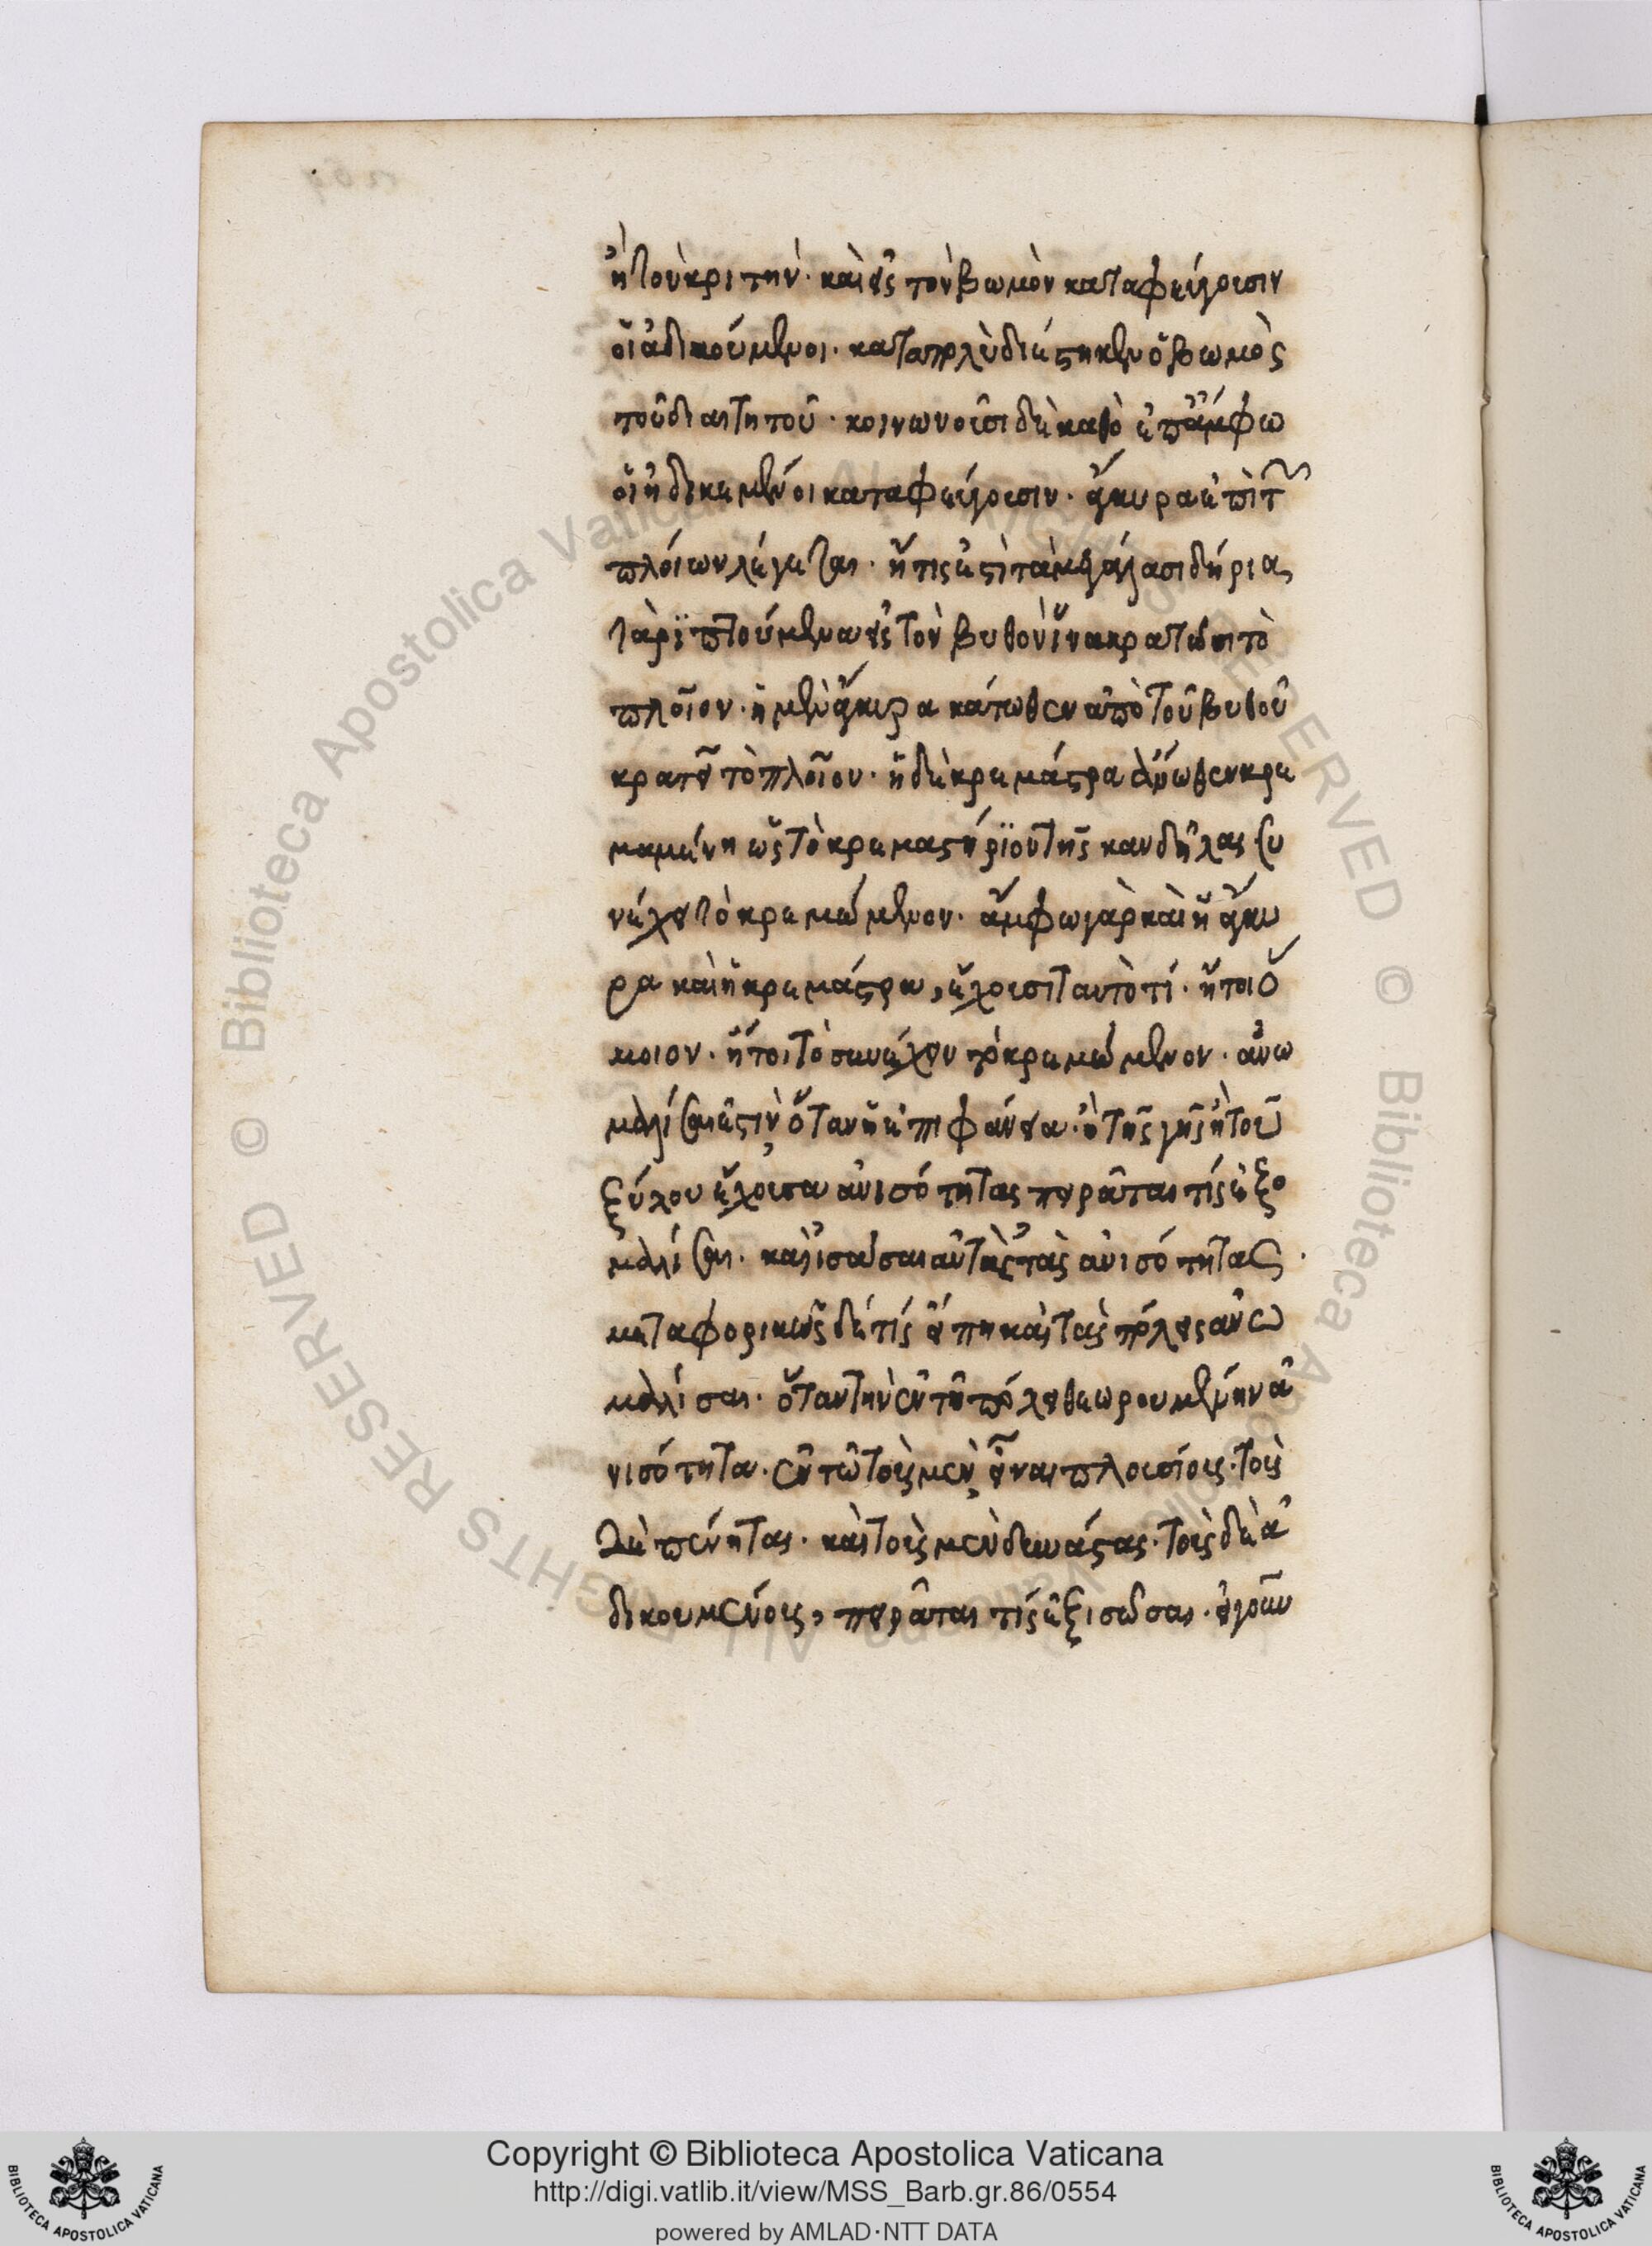 ἢ τὸν κριτήν· καὶ εἰς τὸν βωμὸν καταφεύγουσιν
οἱ ἀδικούμενοι· κατὰ πλ δι ἕστηκεν ὁ βωμὸς
τοῦ διαιτητοῦ· κοινωνοῦσι δὲ καθὸ ἐπ ἄμφω
οἱ ἠδικημένοι καταφεύγουσιν· ἄγκυρα ἐπὶ τῶν
πλοίων λέγεται· ἥτις ἐστὶ τὰ μεγάλα σιδήρια,
τὰ ῥιπτούμενα εἰς τὸν βυθὸν ἵνα κρατῶσι τὸ
πλοῖον· ἡ μὲν ἄγκυρα κάτωθεν ἀπὸ τοῦ βυθοῦ
κρατεῖ τὸ πλοῖον· ἡ δὲ κρεμάστρα ἄνωθεν κρε
μαμένη ὡς τὸ κρεμαστήριον τῆς κανδήλας συ
νέχει τὸ κρεμώμενον· ἄμφω γὰρ καὶ ἡ ἄγκυ
ρα καὶ ἡ κρεμάστρα, ἔχουσι ταυτὸ τί· ἤτοι ὅ
μοιον· ἤτοι τὸ συνέχειν τὸ κρεμώμενον· ἀνω
μαλίσαι ἐστὶν, ὅταν ἡ ἐπιφάνεια· ἢ τῆς γῆς ἢ τοῦ
ξύλου ἔχουσα ἀνισότητας πειρᾶται τίς ἐξο
μαλίσαι· καὶ ἰσῶσαι αὐτὰς τὰς ἀνισότητας·
μεταφορικῶς δέ τίς εἴπη καὶ τὰς πόλεις ἀνω
μαλίσαι· ὅταν τὴν ἐν τῇ πόλει θεωρουμένην ἀ
νισότητα· ἐν τῷ τοὺς μὲν, εἶναι πλουσίους· τοὺς
δὲ πένητας· καὶ τοὺς μὲν δυνάστας· τοὺς δὲ ἀ
δικουμένους, πειρᾶται τίς ἐξισῶσαι· εἰγοῦν